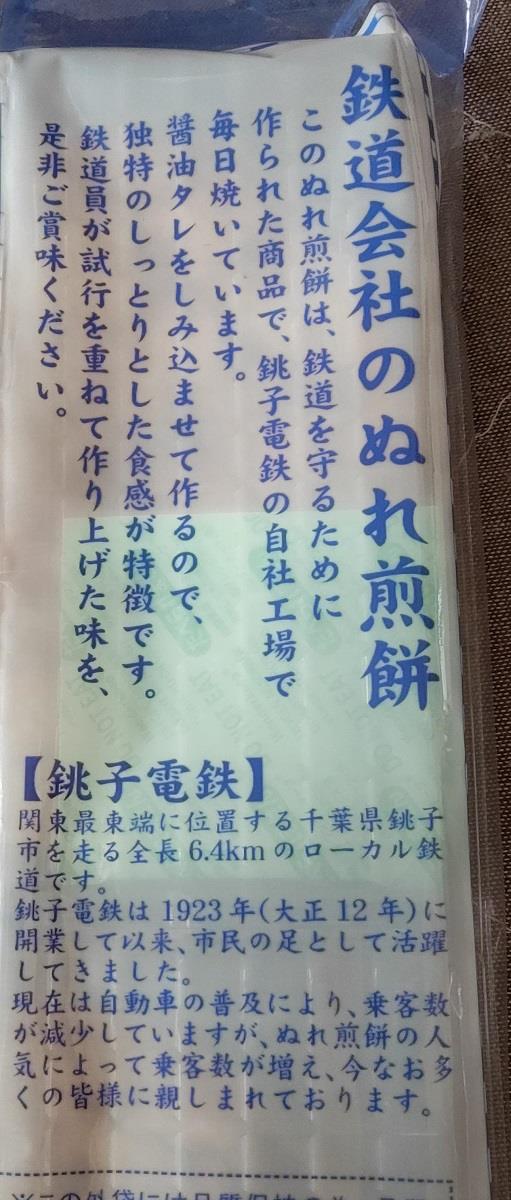 鉄道会社のぬれ煎餅
このぬれ煎餅は、鉄道を守るために
作られた商品で、銚子電鉄の自社工場で
毎日焼いています。
醤油タレをしみ込ませて作るので、
独特のしっとりとした食感が特徴です。
鉄道員が試行を重ねて作り上げた味を、
是非ご賞味ください。
DO NOT EAT
【銚子電鉄】
関東最東端に位置する千葉県銚子
市を走る全長6.4kmのローカル鉄
道です。
銚子電鉄は1923年(大正12年)に
開業して以来、市民の足として活躍
してきました。
現在は自動車の普及により、乗客数
が減少していますが、ぬれ煎餅の人
気によって乗客数が増え、今なお多
くの皆様に親しまれております。